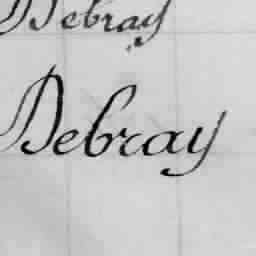 Debray
Debray